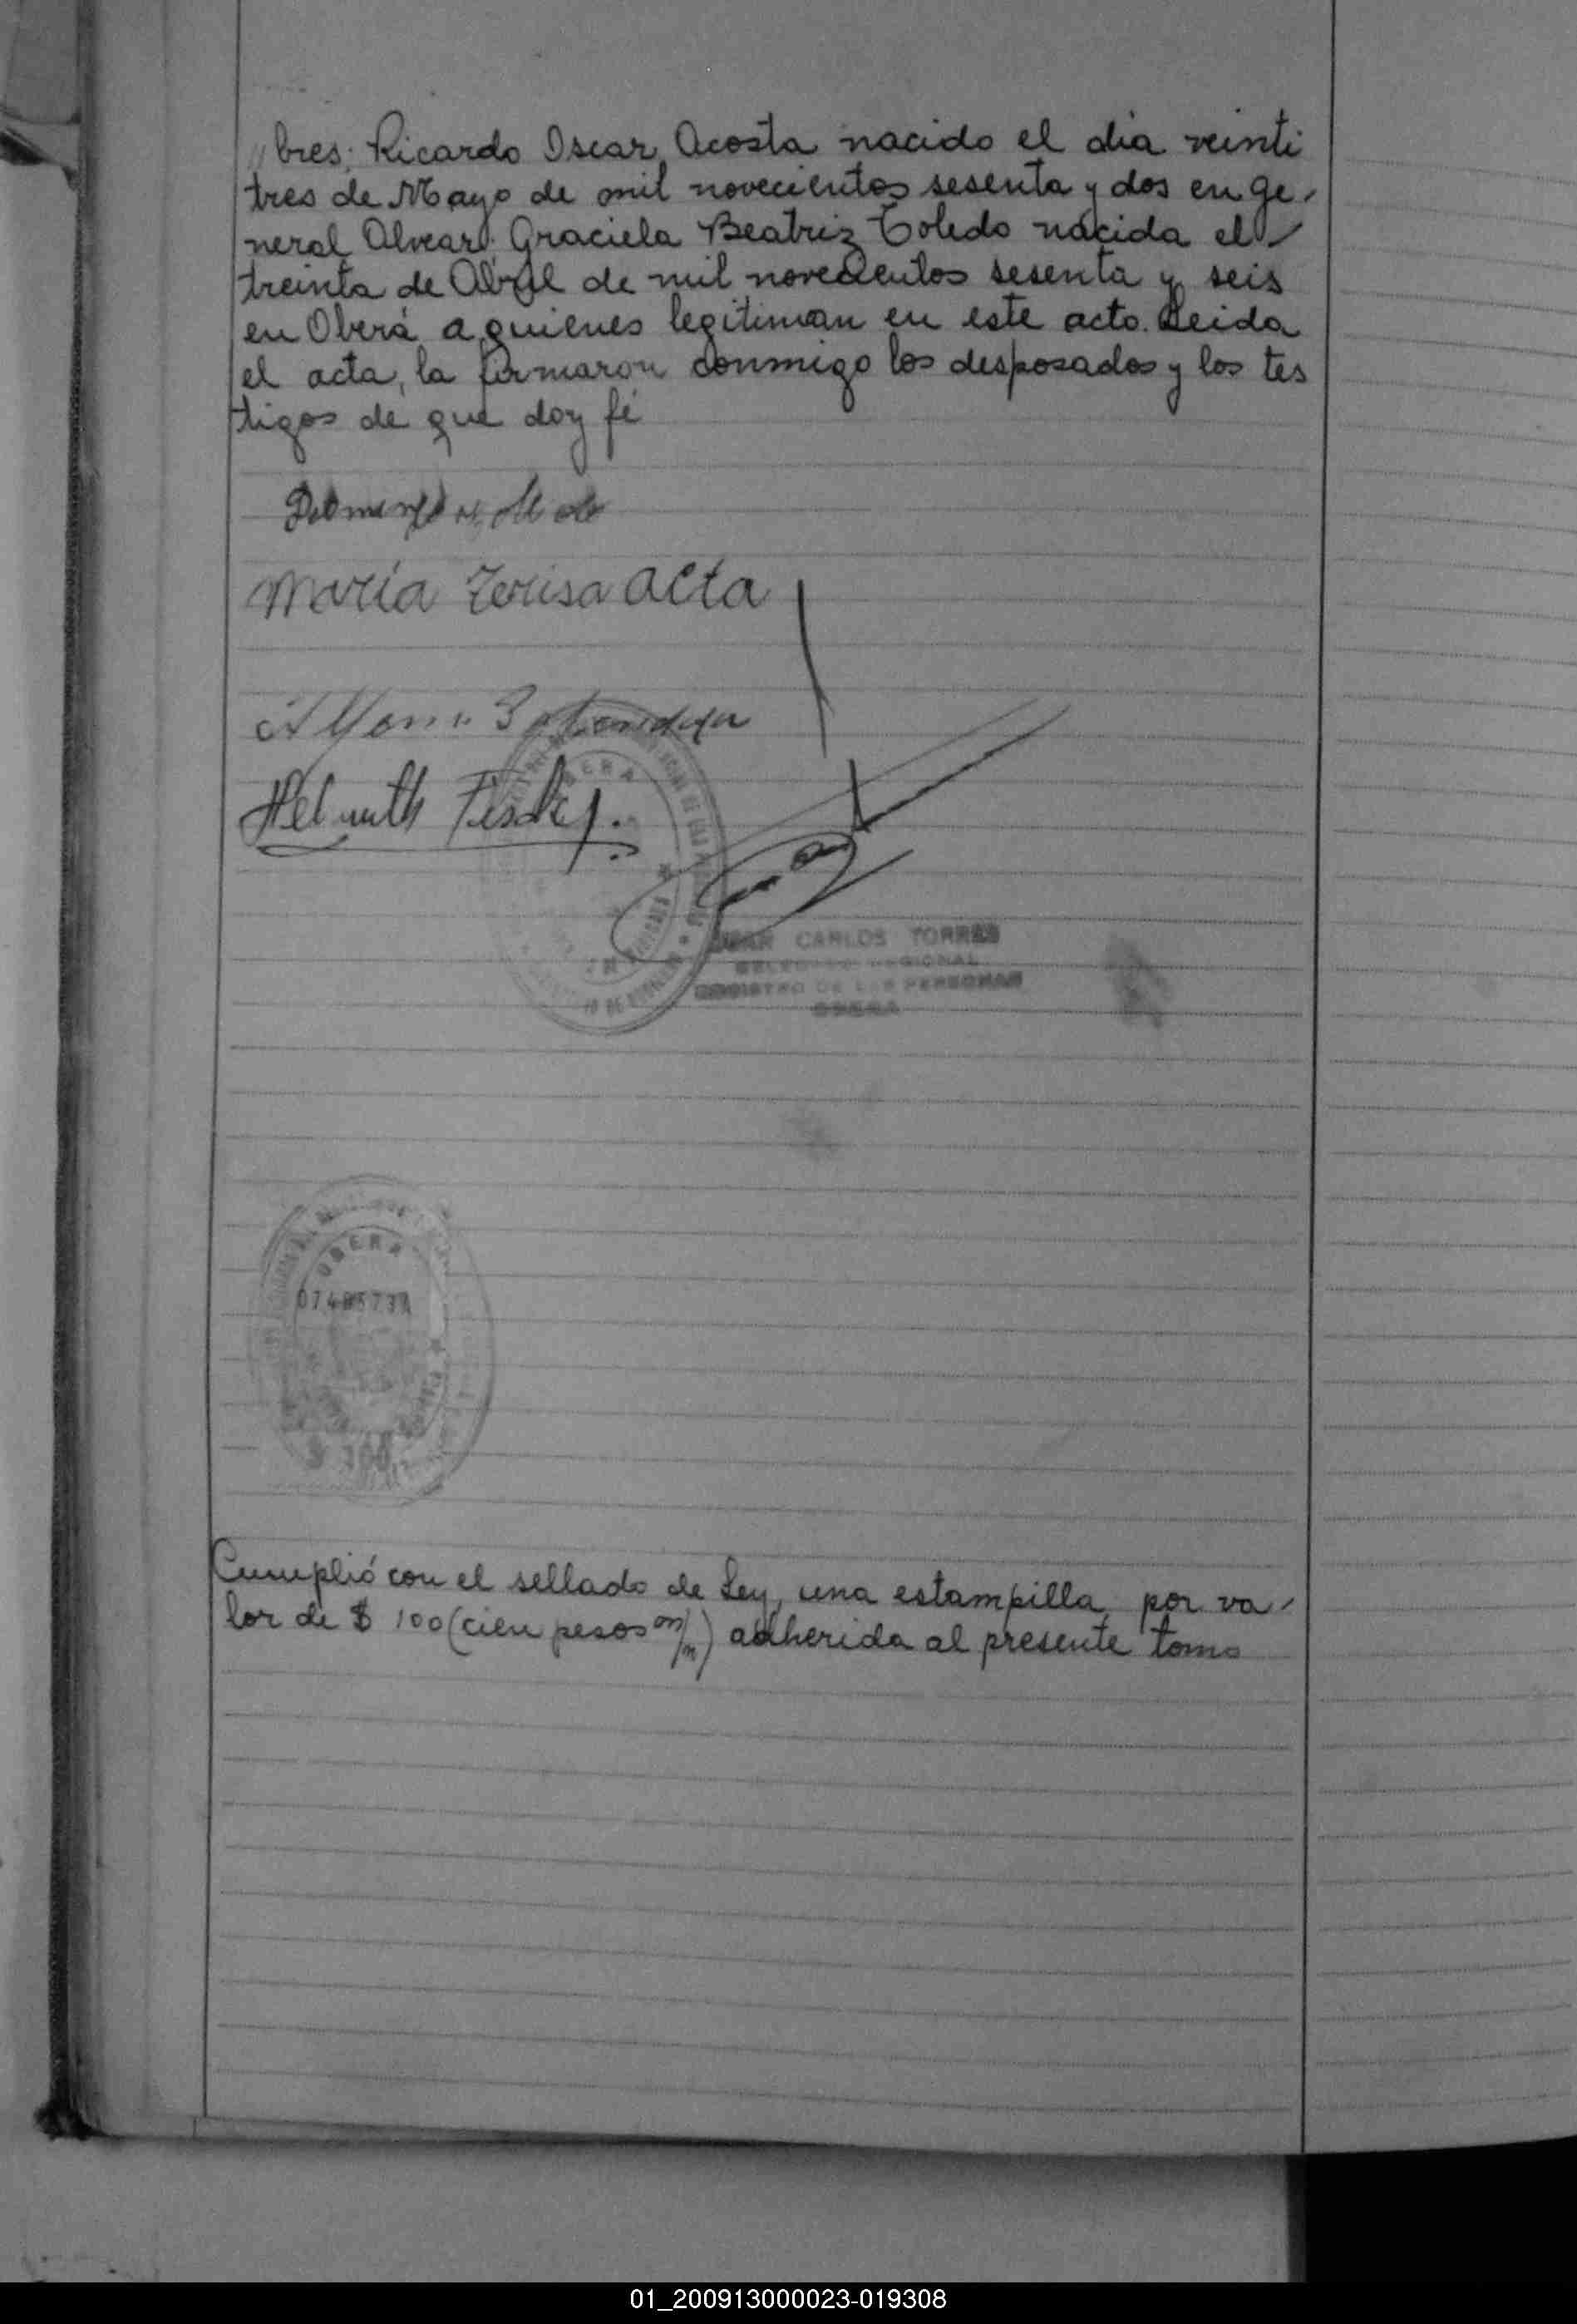 " bres: Ricardo Oscar Acosta nacido el día veinti
tres de Mayo de mil novecientos sesenta y dos en Ge-
neral Alvear: Graciela Beatriz Toledo nacida el
treinta de Abril de mil novecientos sesenta y seis
en Oberá a quienes legitiman en este acto. Leida
el acta, la firmaron conmigo los desposados y los tes
tigos de que doy fé
María Teresa acta
Helmuth
CARLOS TORRES
REGIONAL
REGISTRO DE LAS PERSONAS
OBERA
OBERA
OBERA
$ 100
Cumplió con el sellado de Ley, una estampilla por va-
lor de $ 100 (cien pesos m/n) adherida al presente tomo
01_200913000023-019308